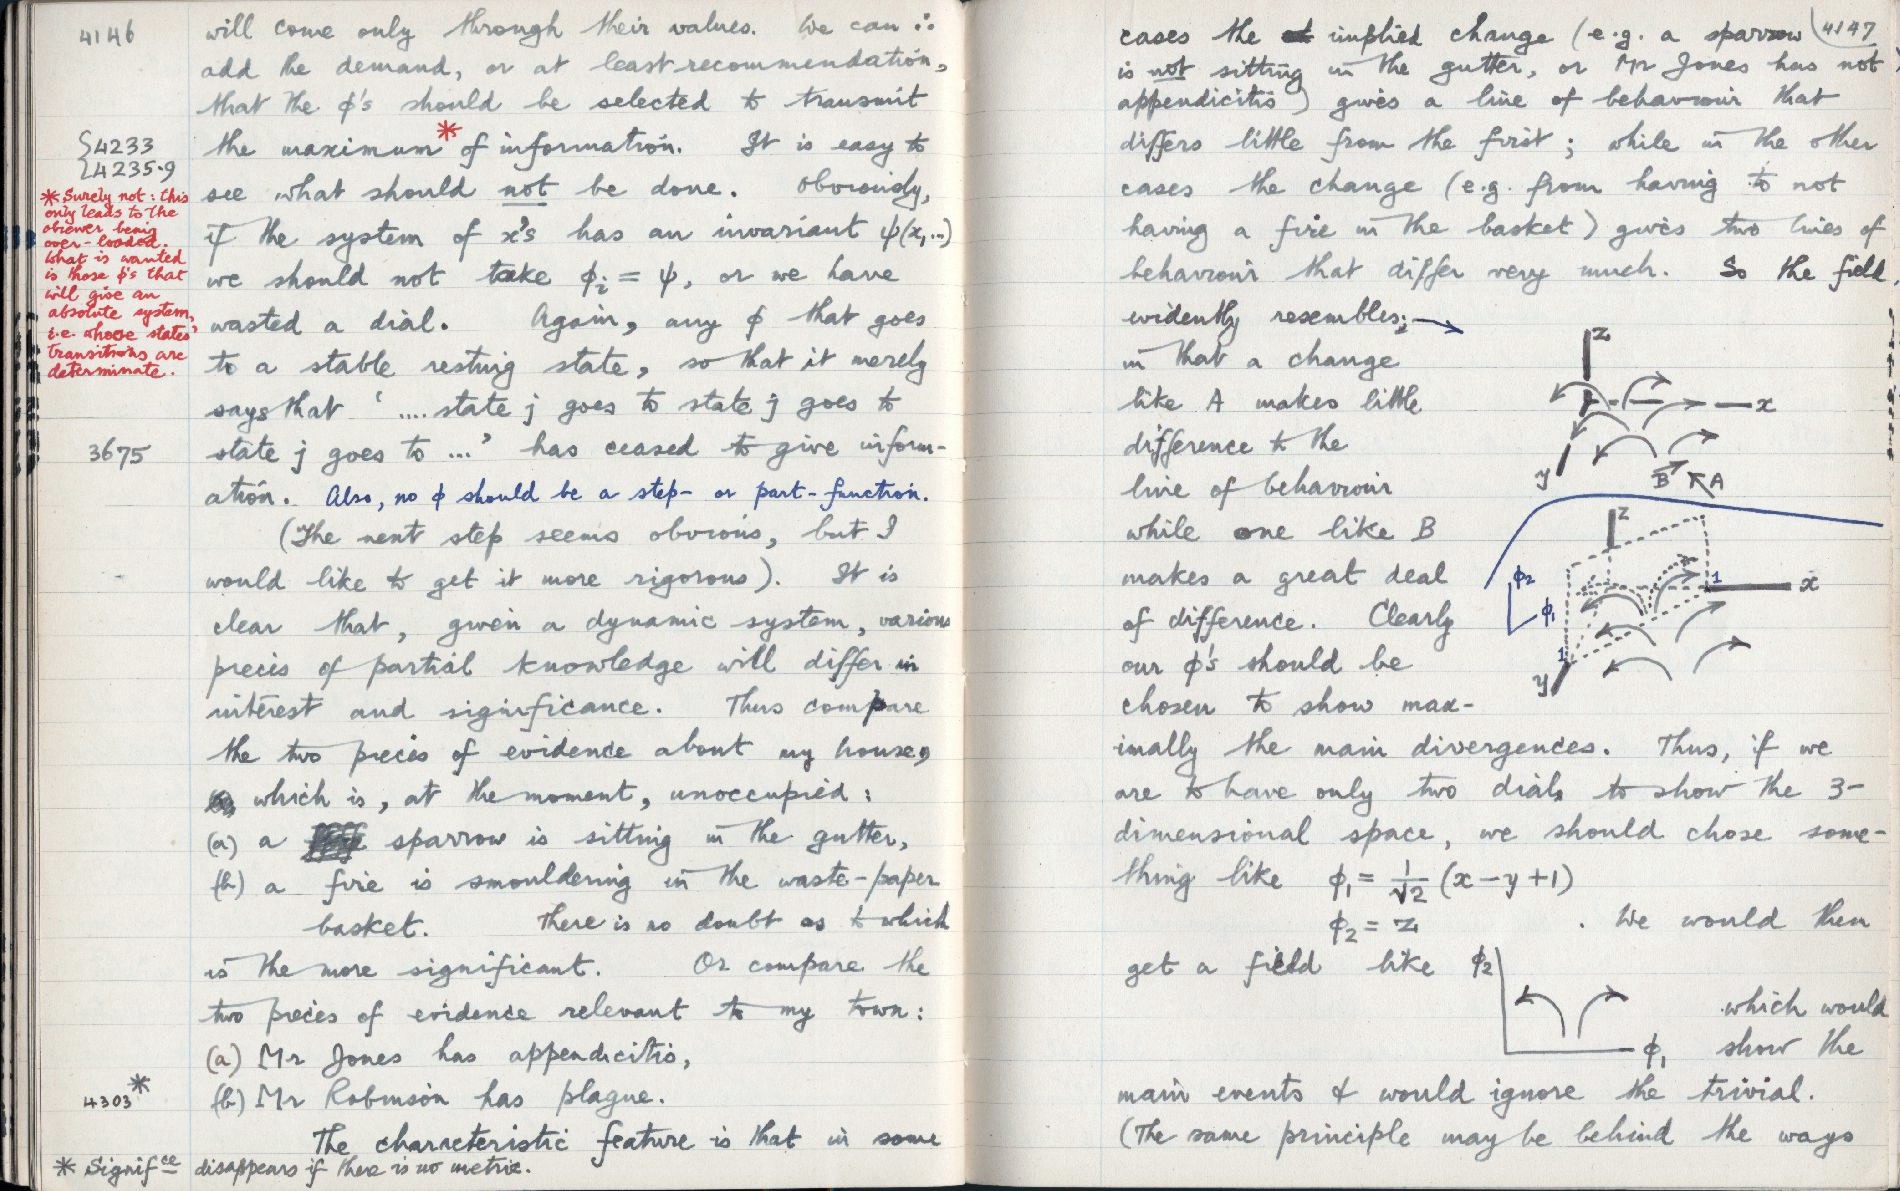 4146
will come only through their values. We can ∴
add the demand, or at least recommendation,
that the ϕ's should be selected to transmit
the maximum* of information. It is easy to
see what should not be done. Obviously,
if the system of x's has an invariant ψ(x,...)
we should not take ϕi = ψ, or we have
wasted a dial. Again, any ϕ that goes
to a stable resting state, so that it merely
says that '....state j goes to state j goes to
state j goes to ...' has ceased to give inform-
ation. Also, no ϕ should be a step- or part-function.
(The next step seems obvious, but I
would like to get it more rigorous). It is
clear that, given a dynamic system, various
pieces of partial knowledge will differ in
interest and significance. Thus compare
the two pieces of evidence about my house,
which is, at the moment, unoccupied:
(a) a sparrow is sitting in the gutter,
(b) a fire is smouldering in the waste-paper
basket. There is no doubt as to which
is the more significant. Or compare the
two pieces of evidence relevant to my town:
(a) Mr Jones has appendicitis,
(b) Mr Robinson has plague.
The characteristic feature is that in some
* Signifce disappears if there is no metric.
4233
4235.9
* Surely not: this
only leads to the
observer being
over-loaded.
What is wanted
is those ϕ's that
will give an
absolute system,
i.e. whose states'
transitions are
determinate.
3675
4303*
4147
cases the implied change (e.g. a sparrow
is not sitting in the gutter, or Mr Jones has not
appendicitis) gives a line of behaviour that
differs little from the first; while in the other
cases the change (e.g. from having to not
having a fire in the basket) gives two lines of
behaviour that differ very much. So the field
evidently resembles;
in that a change
like A makes little
difference to the
line of behaviour
while one like B
makes a great deal
of difference. Clearly
our ϕ's should be
chosen to show max-
imally the main divergences. Thus, if we
are to have only two dials to show the 3-
dimensional space, we should chose some-
thing like ϕ1 = 1/√2 (x-y+1)
ϕ2 = z . We would then
get a field like ϕ2
which would
ϕ1 show the
main events & would ignore the trivial.
(The same principle may be behind the ways
z
x
y
B
A
z
ϕ2
ϕ1
1
x
1
y